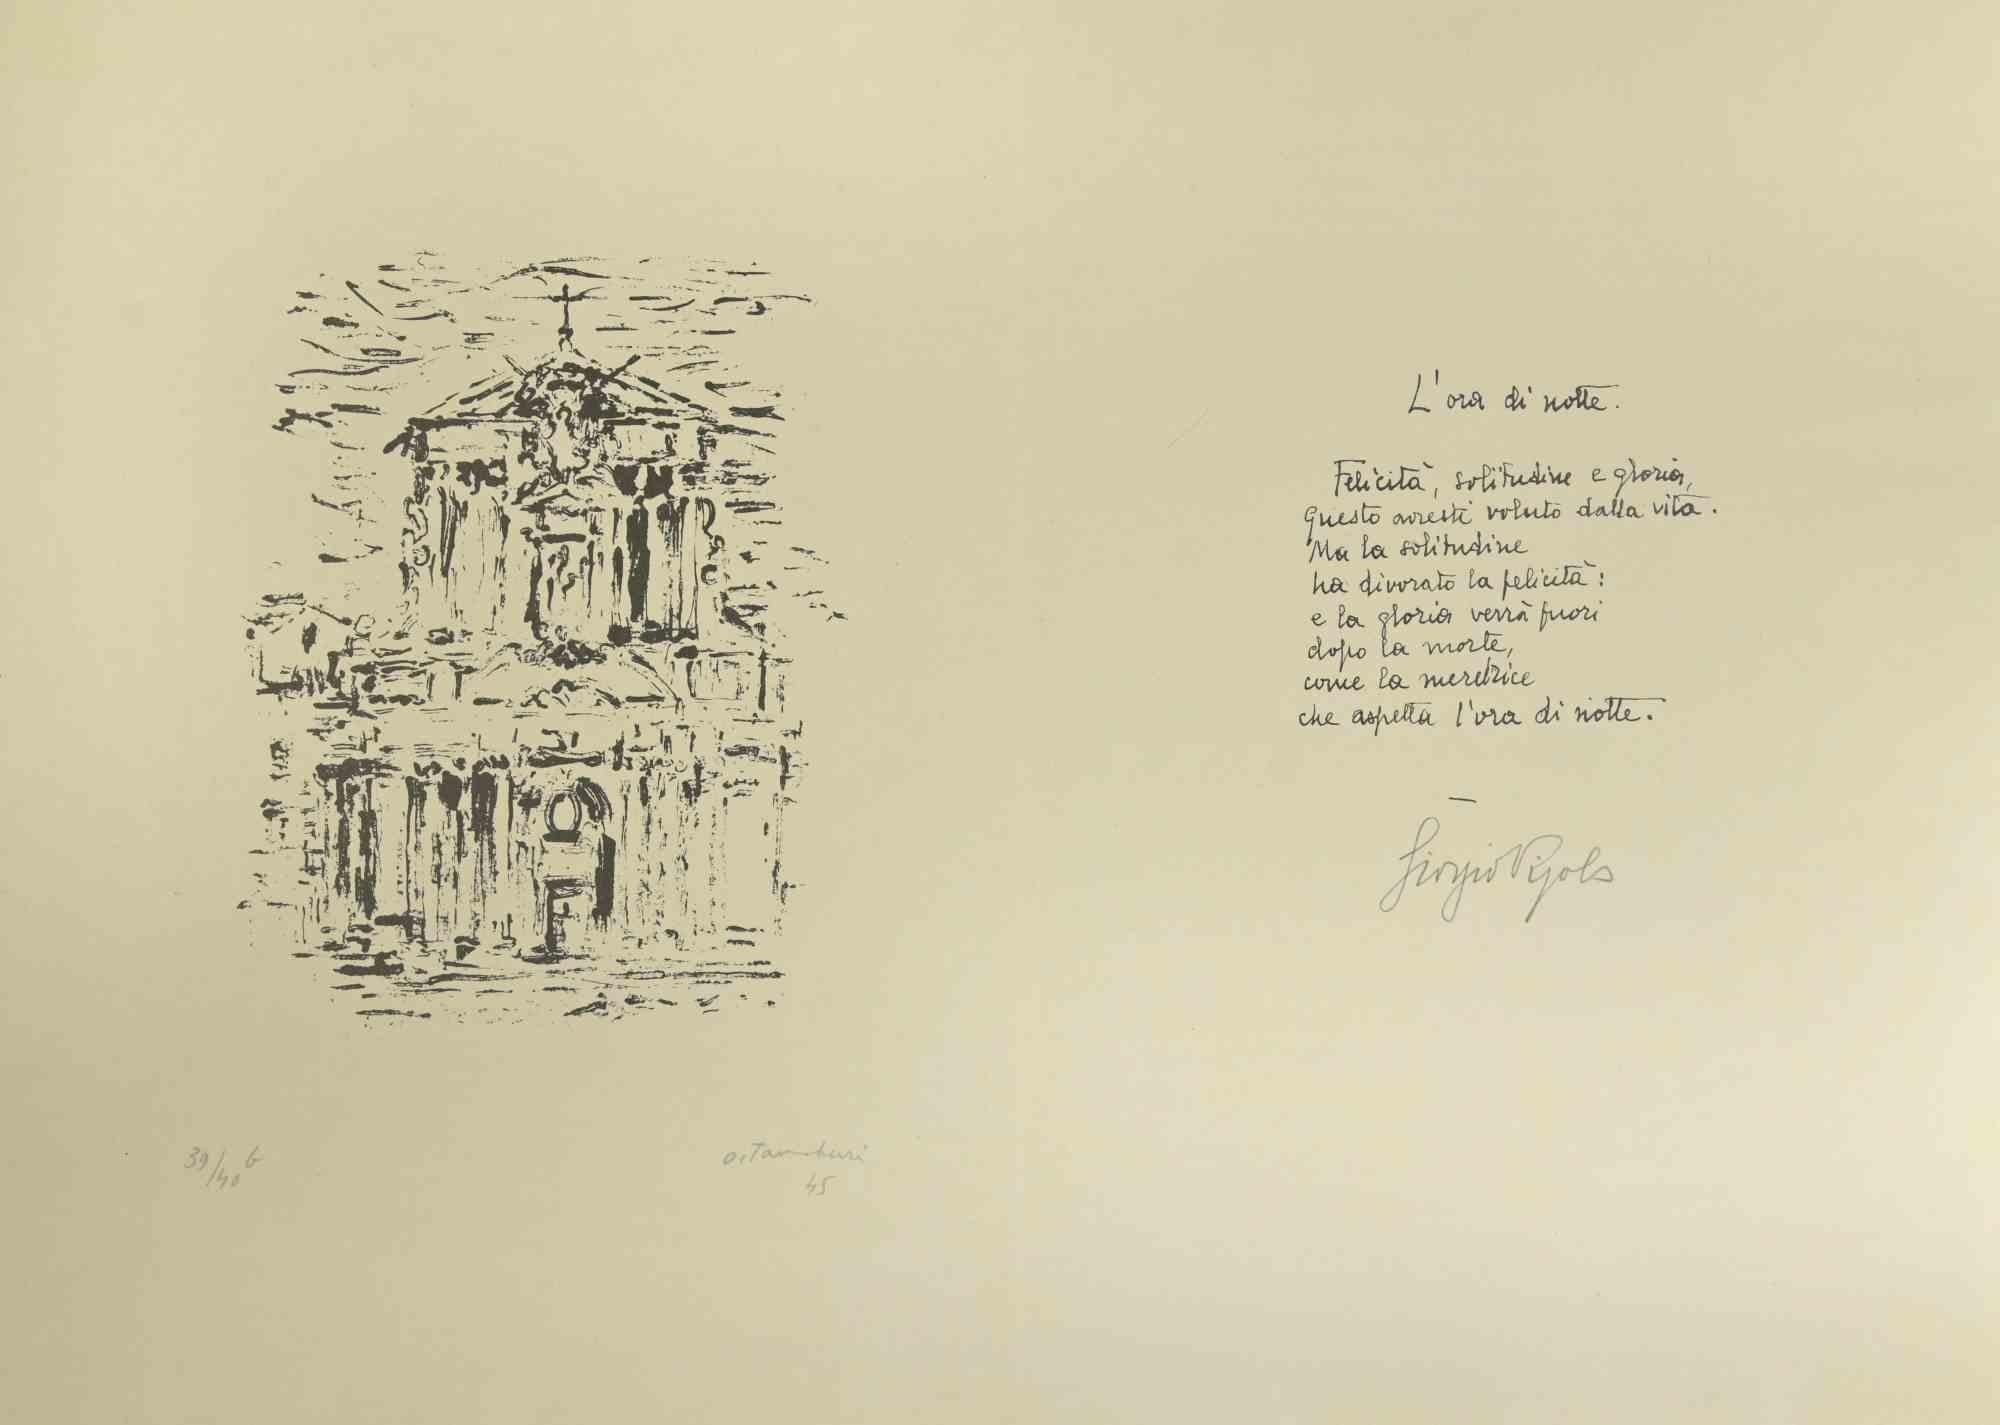 L'ora di notte.
Felicità, solitudine e gloria,
questo avresti voluto dalla vita.
Ma la solitudine
ha divorato la felicità:
e la gloria verrà fuori
dopo la morte,
come la meretrice
che aspetta l'ora di notte.
Giorgio
39/40 G
O. Tamburi
45